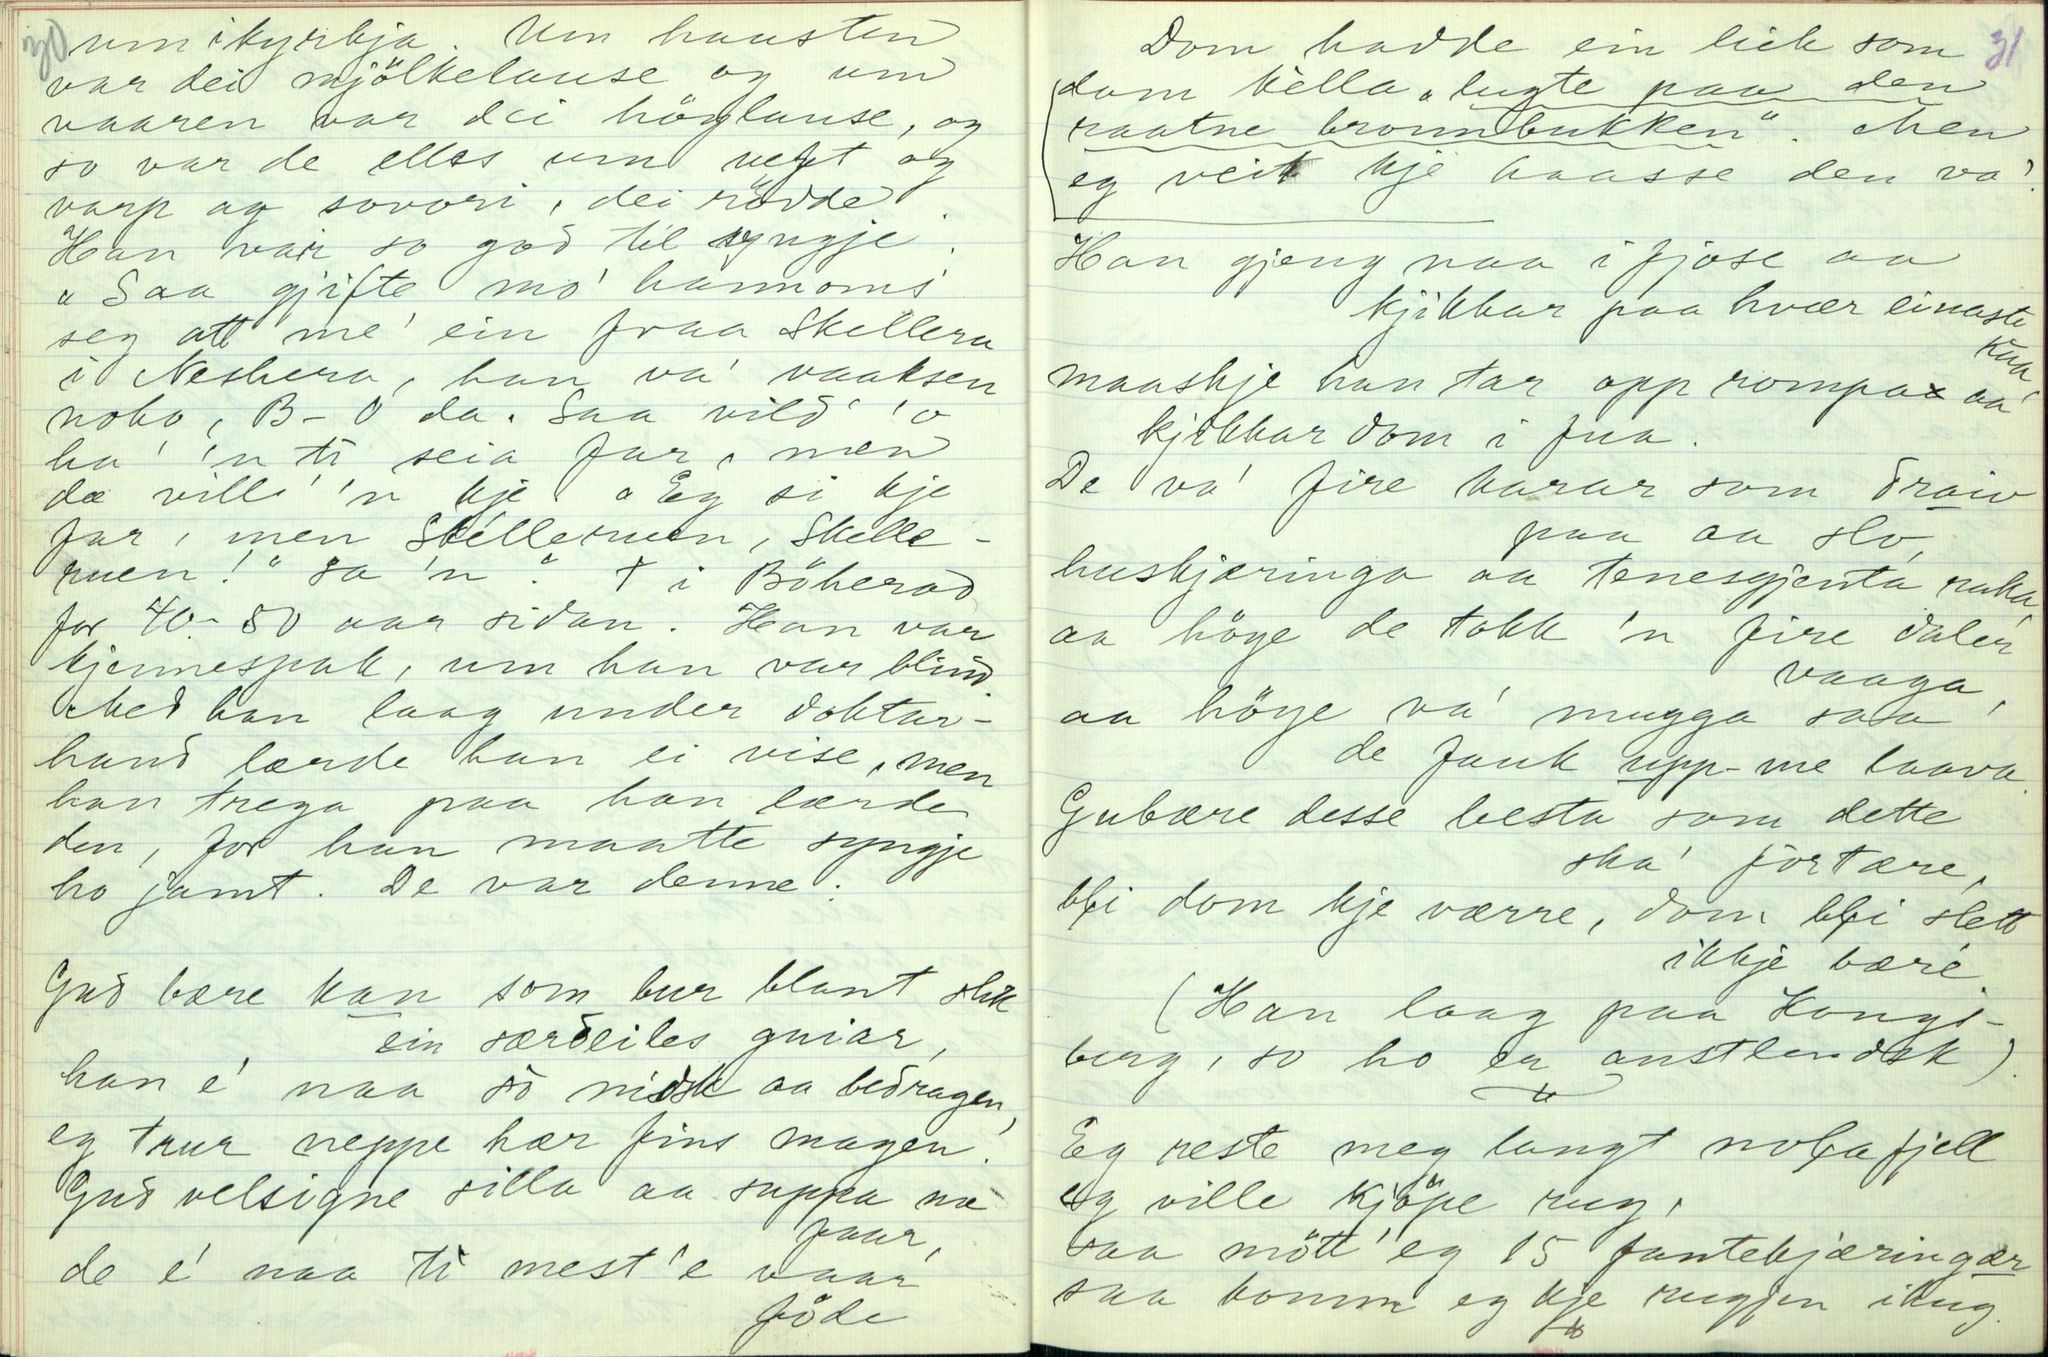 30
um ikyrkja. Um hausten
var dei mjölkelause og um
vaaren var dei höylause, og
so var de elles um veft og
varp og sovori, dei rödde.
Han var so god til syngje.
"Saa gjifte mo' hannoms
seg att me' ein fraa Skilleru
i Neshera, han va' vaaksen
noko, B-O da. Saa vild' 'o
ha' 'n ti seia far, men
dæ ville' 'n kje. "Eg si kje
far, men Skilleruen, Skille-
ruen!" sa 'n." † i Böherad
for 40-50 aar sidan. Han var
kjennespak, um han var blind.
Med han laag under doktar-
hand lærde han ei vise, men
han trega paa han lærde
den, for han maatte syngje
ho jamt. De var denne:
Gud bære kan som bur blant slik
ein særdeiles gniar,
han é naa so nidsk aa bedragen,
eg trur neppe hær fins magen!
Gud velsigne silla aa suppa me
faar,
de é naa ti mest'e vaar
föde
31
Dom hadde ein leik som
dom kella "lugte paa den
raatne bronnbukken". Men
eg veit kje haasse den va'.
Han gjeng naa i fjøse aa
kjikkar paa hvær einaste
kua
maaskje han tar opp rompa aa'
kjikkar dom i fua.
De va' fire karar som draiv
paa aa slo,
huskjæringa aa tenesgjenta raka
aa höye de tokk 'n fire daler
vaaga,
aa höye va' mugga saa'
de fauk upp-me laava.
Gubære desse besta som dette
ska' fortære,
bli dom kje værre, dom bli slett
ikkje bære'.
(Han laag paa Kongs-
berg, so ho er austlendsk).
Eg reste meg langt nolafjell
eg ville kjöpe rug,
saa mött' eg 15 fantekjæringær
saa komm eg kje rugjen ihug.